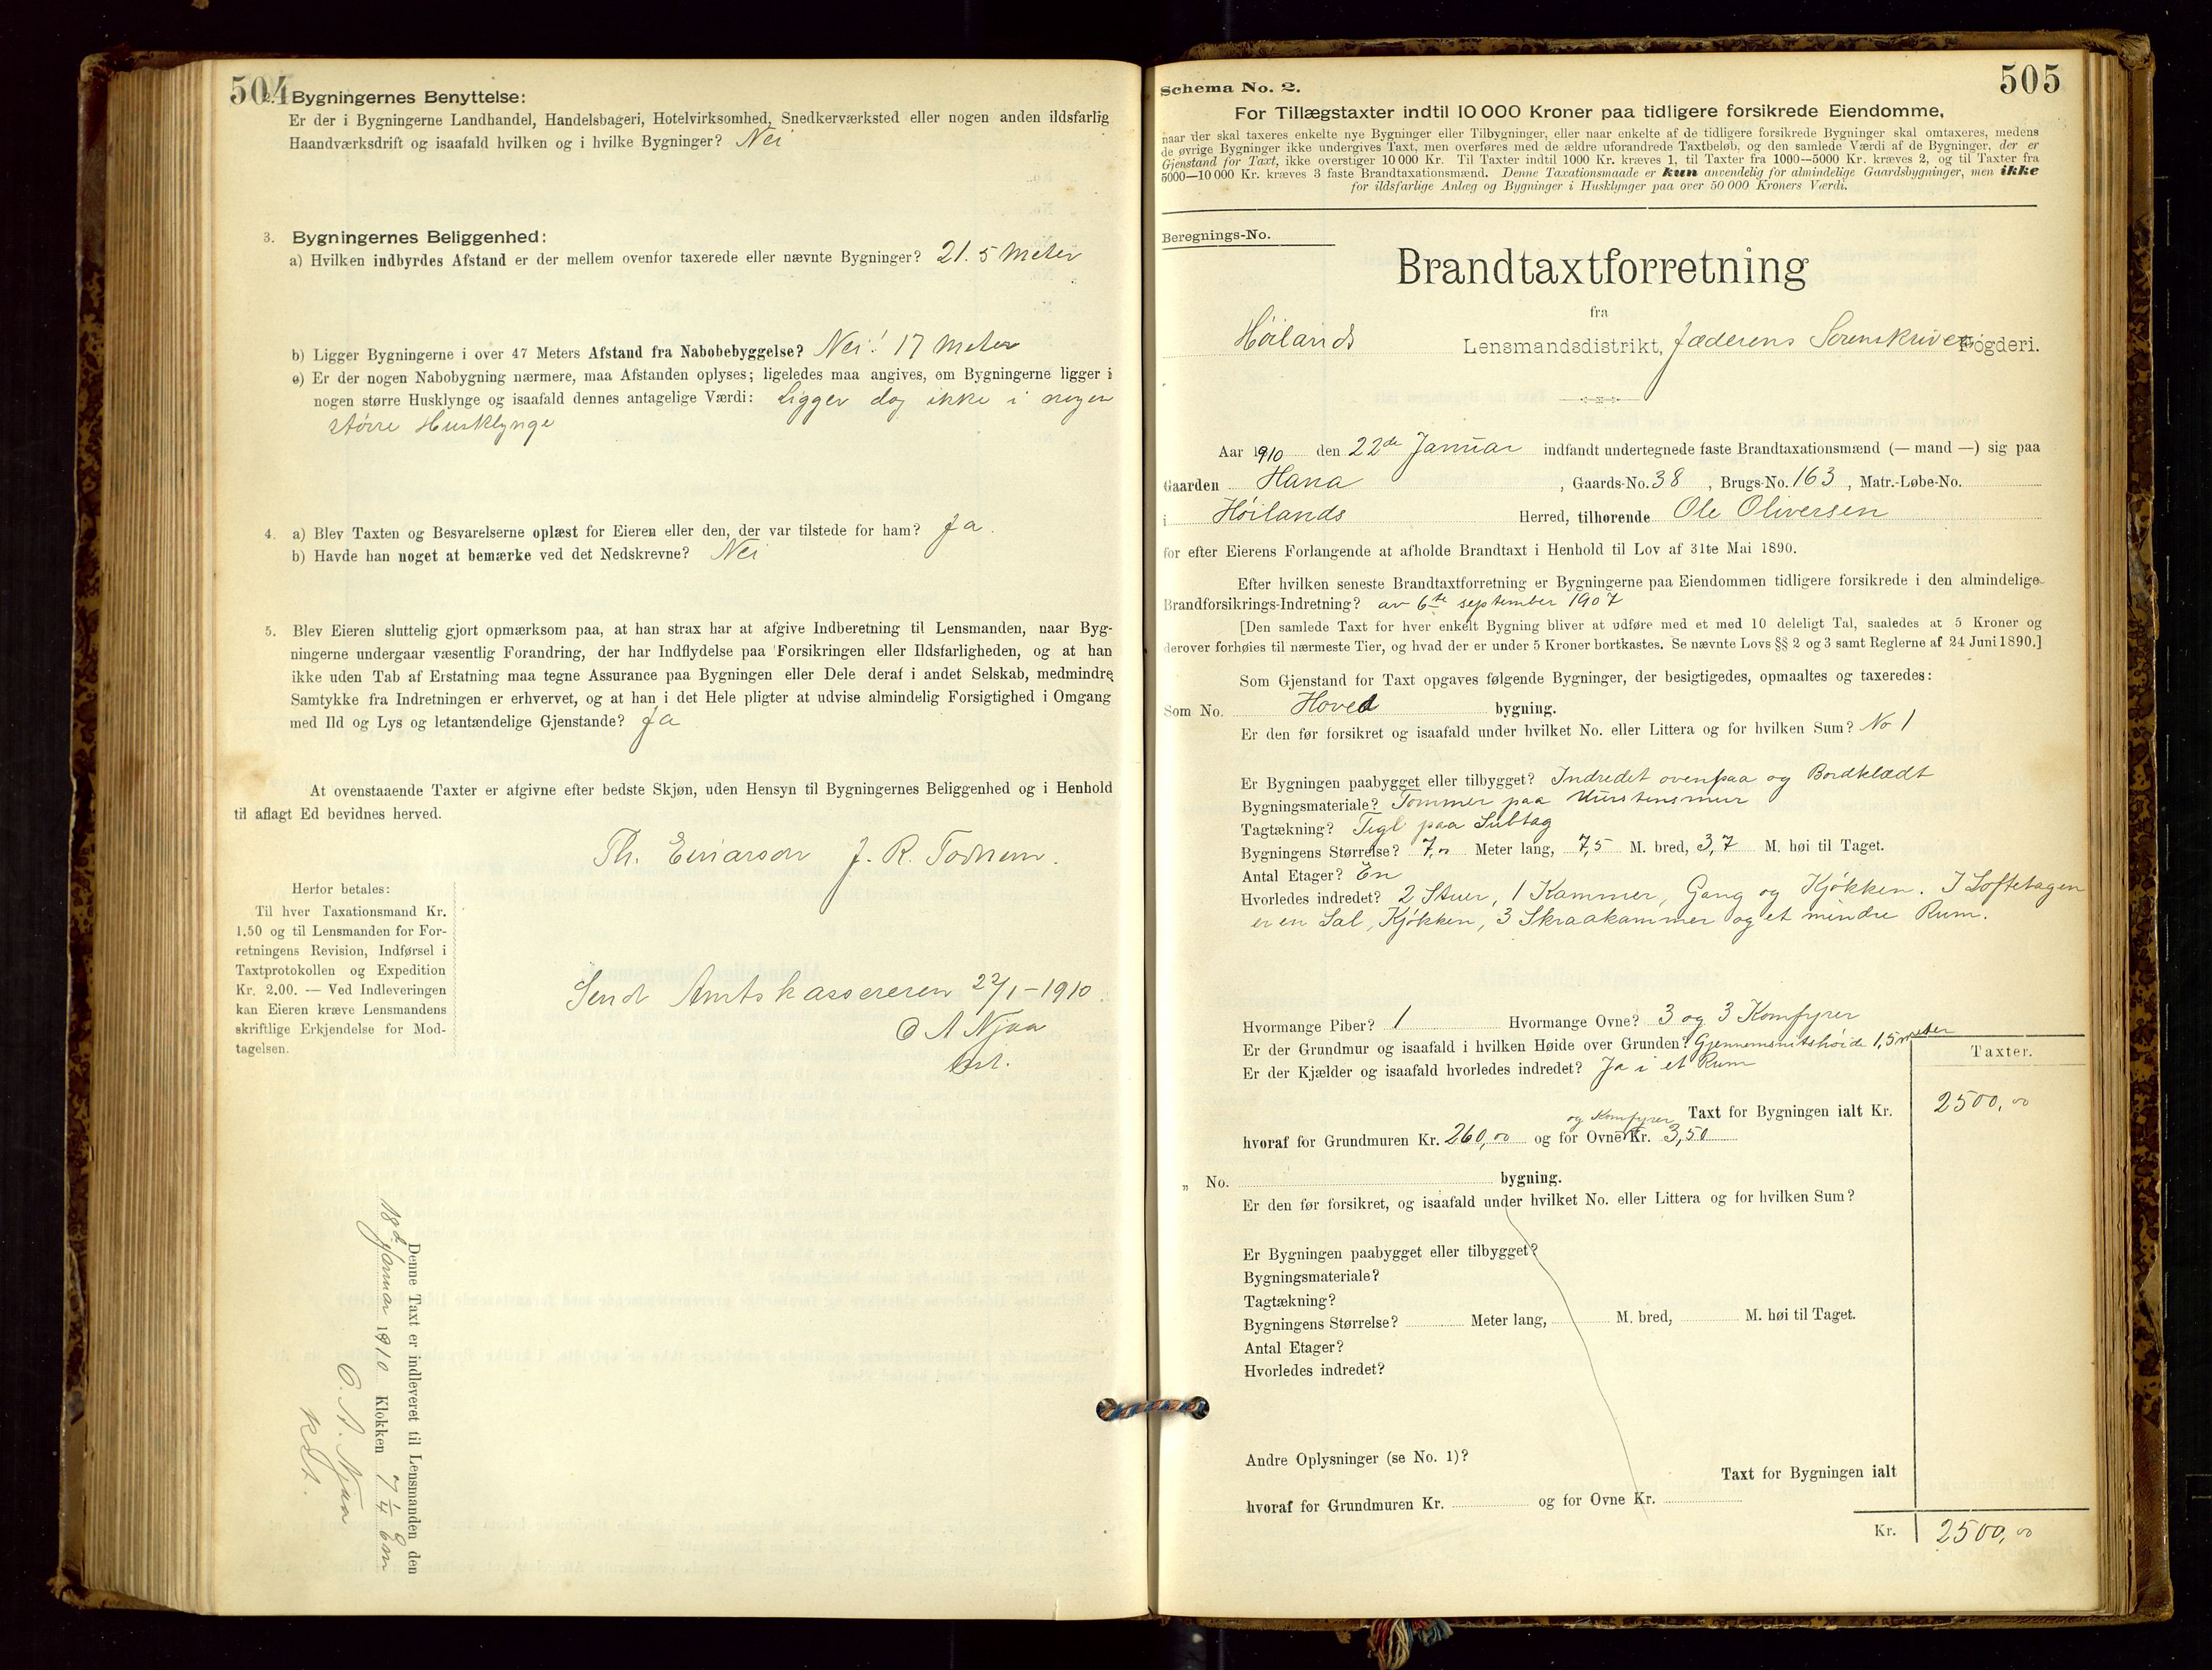 504
2. Bygningernes Benyttelse:
Er der i Bygningerne Landhandel, Handelsbageri, Hotelvirksomhed, Snedkerværksted eller nogen anden ildsfarlig
Haandværksdrift og isaafald hvilken og i hvilke Bygninger? Nei
3. Bygningernes Beliggenhed:
a) Hvilken indbyrdes Afstand er der mellem ovenfor taxerede eller nævnte Bygninger? 21.5 Meter
b) Ligger Bygningerne i over 47 Meters Afstand fra Nabobebyggelse? Nei! 17 Meter
c) Er der nogen Nabobygning nærmere, maa Afstanden oplyses; ligeledes maa angives, om Bygningerne ligger i
nogen større Husklynge og isaafald dennes antagelige Værdi: Ligger dog ikke i nogen
større Husklynge
4. a) Blev Taxten og Besvarelserne oplæst for Eieren eller den, der var tilstede for ham? Ja.
b) Havde han noget at bemærke ved det Nedskrevne? Nei
5. Blev Eieren sluttelig gjort opmærksom paa, at han strax har at afgive Indberetning til Lensmanden, naar Byg-
ningerne undergaar væsentlig Forandring, der har Indflydelse paa Forsikringen eller Ildsfarligheden, og at han
ikke uden Tab af Erstatning maa tegne Assurance paa Bygningen eller Dele deraf i andet Selskab, medmindre
Samtykke fra Indretningen er erhvervet, og at han i det Hele pligter at udvise almindelig Forsigtighed i Omgang
med Ild og Lys og letantændelige Gjenstande? Ja
At ovenstaaende Taxter er afgivne efter bedste Skjøn, uden Hensyn til Bygningernes Beliggenhed og i Henhold
til aflagt Ed bevidnes herved.
Th. Einarson J. R. Todnem.
Herfor betales:
Til hver Taxationsmand Kr.
1.50 og til Lensmanden for For-
retningens Revision, Indførsel i
Taxtprotokollen og Expedition
Kr. 2.00. — Ved Indleveringen
kan Eieren kræve Lensmandens
skriftlige Erkjendelse for Mod-
tagelsen.
Sendt Amtskassereren 22/1-1910.
O A Njaa
Denne Taxt er indleveret til Lensmanden den
Januar 1910 Klokken 7 1/4 Em
O. A. Njaa
505
Schema No. 2.
For Tillægstaxter indtil 10 000 Kroner paa tidligere forsikrede Eiendomme,
naar der skal taxeres enkelte nye Bygninger eller Tilbygninger, eller naar enkelte af de tidligere forsikrede Bygninger skal omtaxeres, medens
de øvrige Bygninger ikke undergives Taxt, men overføres med de ældre uforandrede Taxtbeløb, og den samlede Værdi af de Bygninger, der er
Gjenstand for Taxt, ikke overstiger 10 000 Kr. Til Taxter indtil 1000 Kr. kræves 1, til Taxter fra 1000—5000 Kr. kræves 2, og til Taxter fra
5000—10 000 Kr. kræves 3 faste Brandtaxationsmænd. Denne Taxationsmaade er kun anvendelig for almindelige Gaardsbygninger, men ikke
for ildsfarlige Anlæg og Bygninger i Husklynger paa over 50 000 Kroners Værdi.
Beregnings-No.
Brandtaxtforretning
fra
Höilands Lensmandsdistrikt, Jæderens Sorenskriver Fogderi.
Aar 1910 den 22de Januar indfandt undertegnede faste Brandtaxationsmænd (— mand —) sig paa
Gaarden Hana, Gaards-No. 38, Brugs-No. 163, Matr.-Løbe-No.
i Höilands Herred, tilhørende Ole Oliversen
for efter Eierens Forlangende at afholde Brandtaxt i Henhold til Lov af 31te Mai 1890.
Efter hvilken seneste Brandtaxtforretning er Bygningerne paa Eiendommen tidligere forsikrede i den almindelige
Brandforsikrings-Indretning? av 6te september 1907
[Den samlede Taxt for hver enkelt Bygning bliver at udføre med et med 10 deleligt Tal, saaledes at 5 Kroner og
derover forhøies til nærmeste Tier, og hvad der er under 5 Kroner bortkastes. Se nævnte Lovs §§ 2 og 3 samt Reglerne af 24 Juni 1890.]
Som Gjenstand for Taxt opgaves følgende Bygninger, der besigtigedes, opmaaltes og taxeredes:
Som No. Hoved bygning.
Er den før forsikret og isaafald under hvilket No. eller Littera og for hvilken Sum? No 1
Er Bygningen paabygget eller tilbygget? Indredet ovenpaa og Bordklædt
Bygningsmateriale? Tømmer paa
Tagtækning? Tegl paa Sutag
Bygningens Størrelse? 7,00 Meter lang, 7,5 M. bred, 3,7 M. høi til Taget.
Antal Etager? En
Hvorledes indredet? 2 Stuer, 1 Kammer, Gang og Kjøkken. I Loftetagen
er en Sal, Kjøkken, 3 Skraakammer og et mindre Rum.
Hvormange Piber? 1 Hvormange Ovne? 3 og 3 Komfyrer
Er der Grundmur og isaafald i hvilken Høide over Grunden? Gjennemsnitshøide 1,5 meter
Er der Kjælder og isaafald hvorledes indredet? Ja i et Rum
Taxter.
Taxt for Bygningen ialt Kr. 2500,00
og Komfyrer
hvoraf for Grundmuren Kr. 260,00 og for Ovne Kr. 3,50
„ No. bygning.
Er den før forsikret, og isaafald under hvilket No. eller Littera og for hvilken Sum?
Er Bygningen paabygget eller tilbygget?
Bygningsmateriale?
Tagtækning?
Bygningens Størrelse? Meter lang, M. bred, M. høi til Taget.
Antal Etager?
Hvorledes indredet?
Andre Oplysninger (se No. 1)?
Taxt for Bygningen ialt
hvoraf for Grundmuren Kr. og for Ovne Kr.
Kr. 2500,00